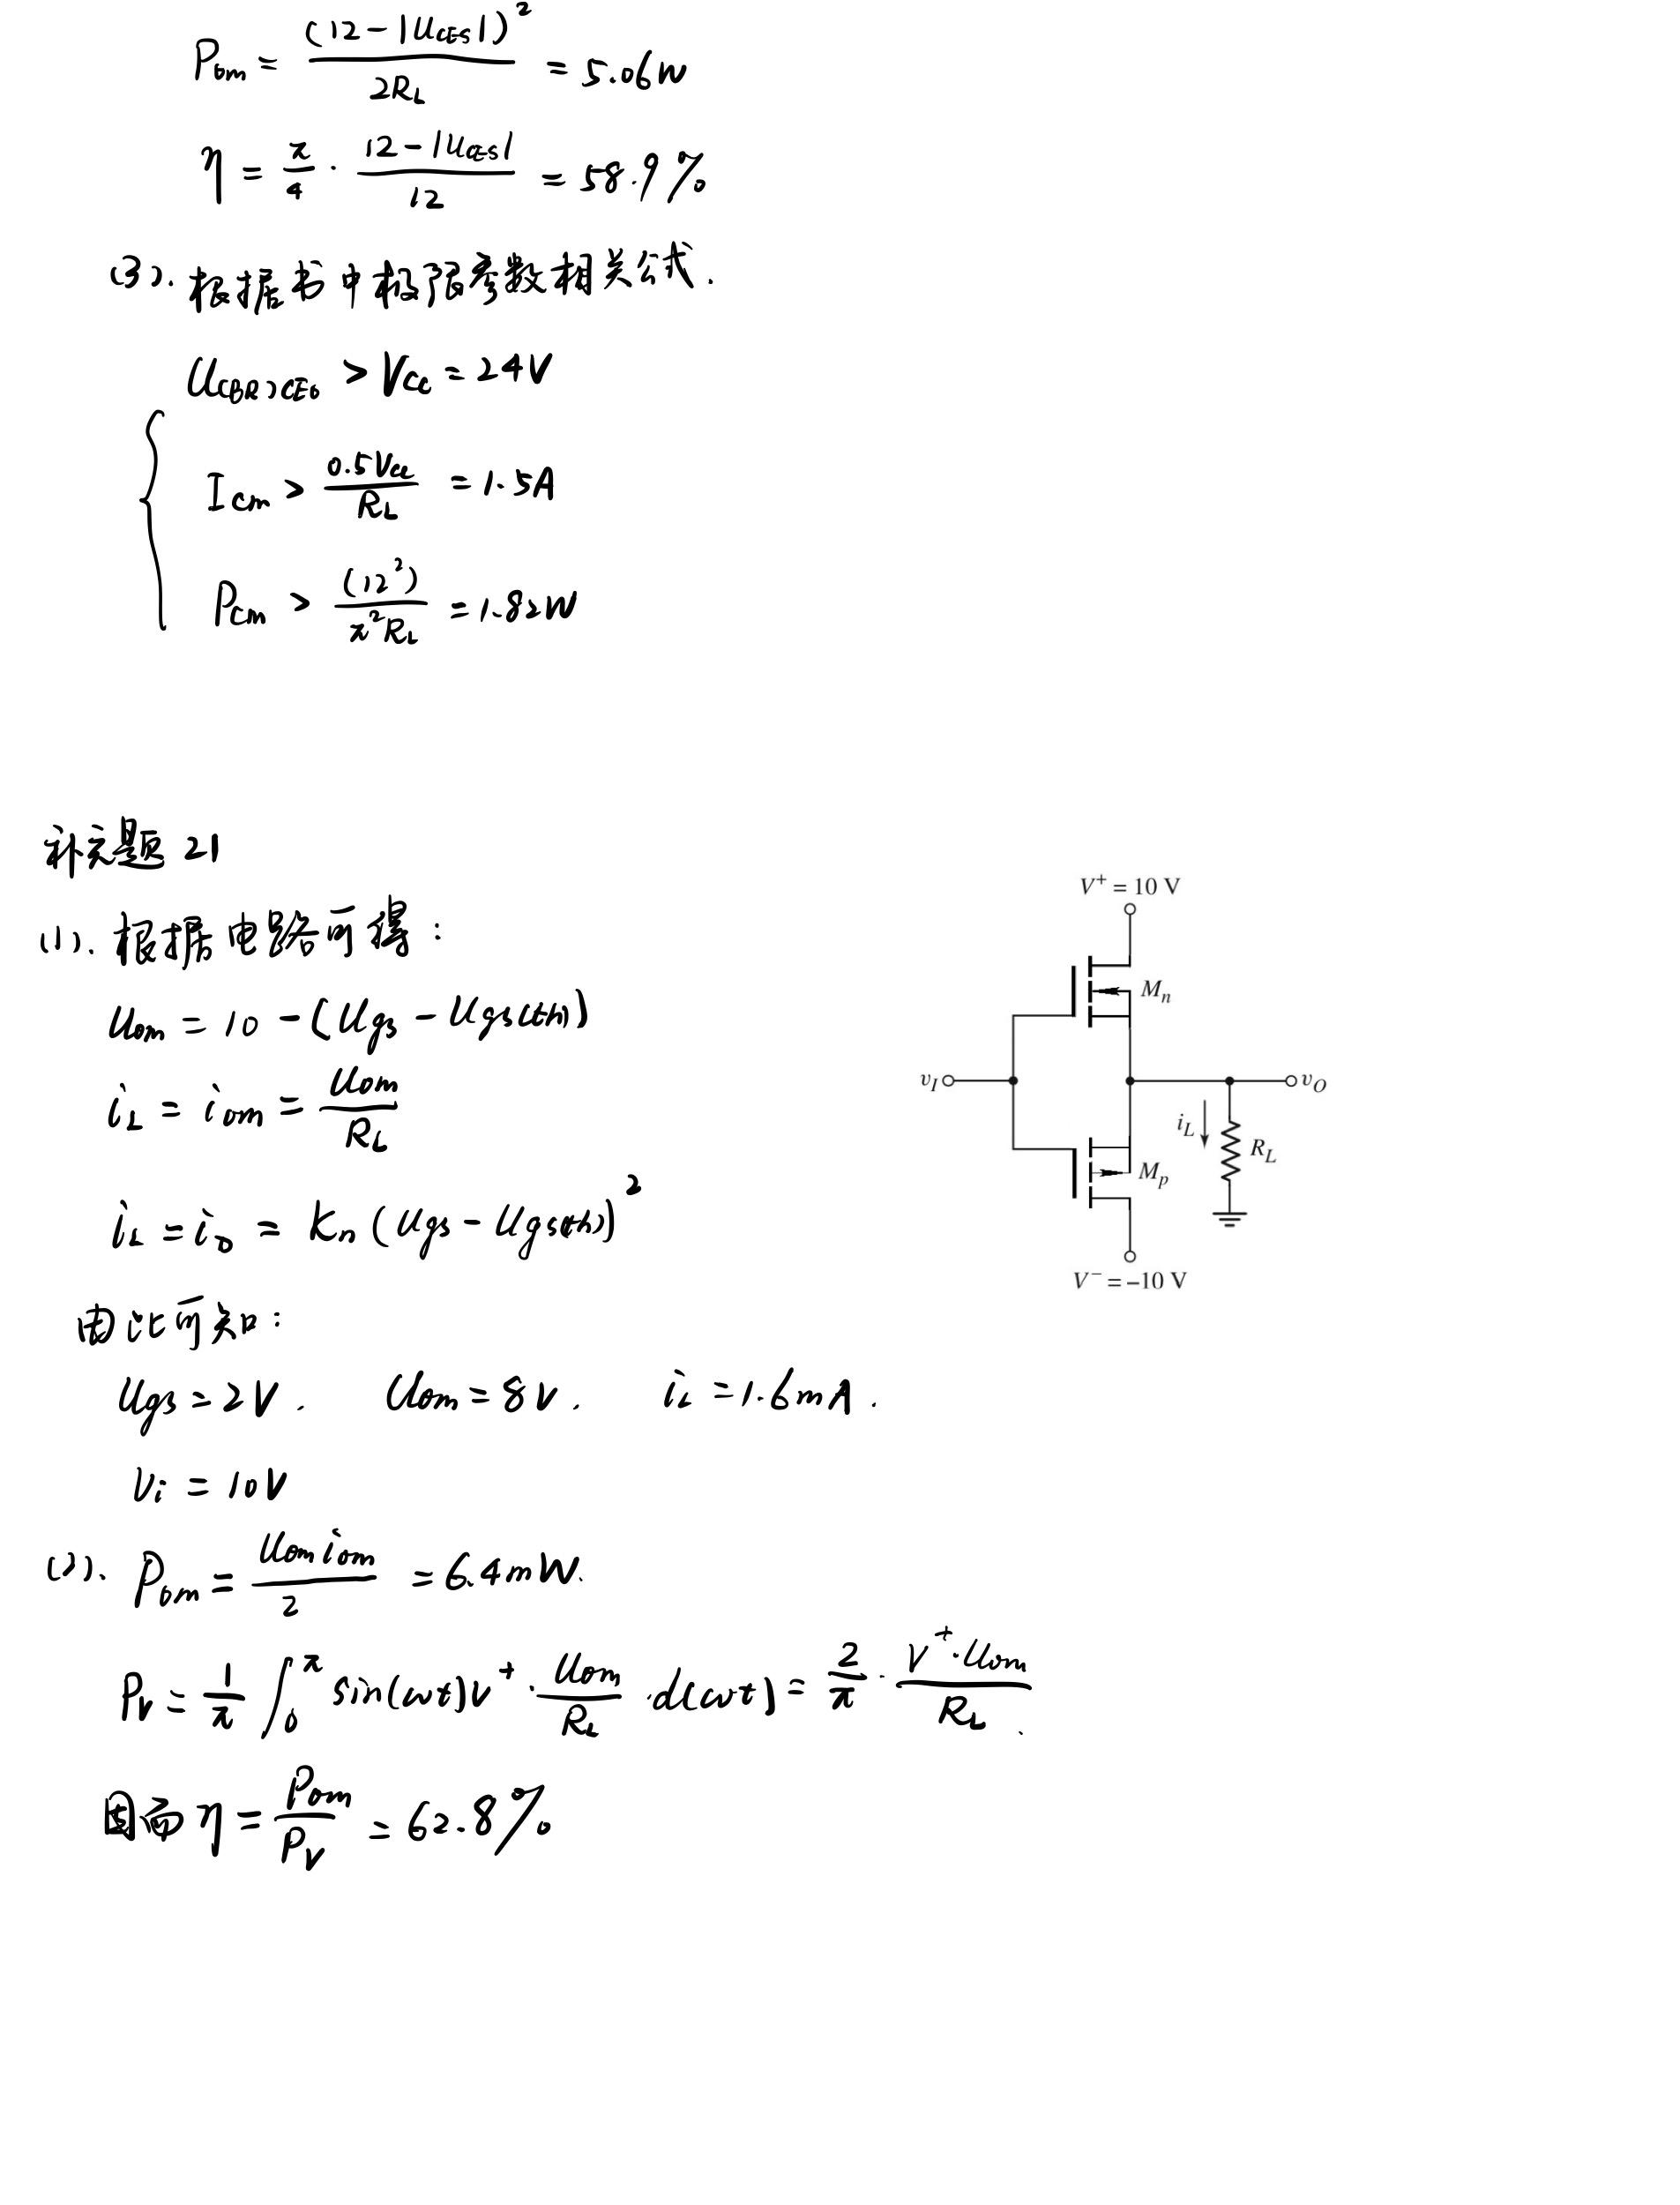 Pom = (12-|UCES|)² / 2RL = 5.06W
η = π/4 · (12-|UCES|) / 12 = 58.9%
(3). 根据书中极限参数相关公式.
U(BR)CEO > Vcc = 24V
Icm > 0.5Vcc / RL = 1.5A
Pcm > (12²) / π²RL = 1.82W
补充题 21
(1). 根据电路可得:
Uom = 10 - (Ugs - Ugs(th))
iL = iom = Uom / RL
iL = iD = Kn (Ugs - Ugs(th))²
由此可知:
Ugs = 2V. Uom = 8V. iL = 1.6mA.
Vi = 10V
(2). Pom = Uom iom / 2 = 6.4mW.
PV = 1/π ∫₀^π sin(ωt) V⁺ · Uom / RL · d(ωt) = 2/π · V⁺·Uom / RL.
因而 η = Pom / PV = 62.8%
V⁺ = 10 V
Mn
vI
vO
iL
RL
Mp
V⁻ = –10 V